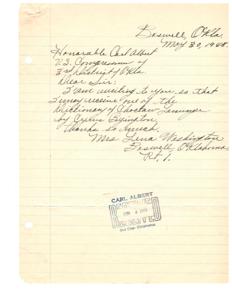 Boswell, Okla.
May 30, 1968
Honorable Carl Albert
U.S. Congressman of
3rd District of Okla
Dear Sir:
I am writing to you so that
I may receive one of the
dictionary of Choctaw Language
by Cyrus Byington
Thanks so much.
Mrs. Lena Washington
Boswell, Oklahoma
Rt. 1.
CARL ALBERT